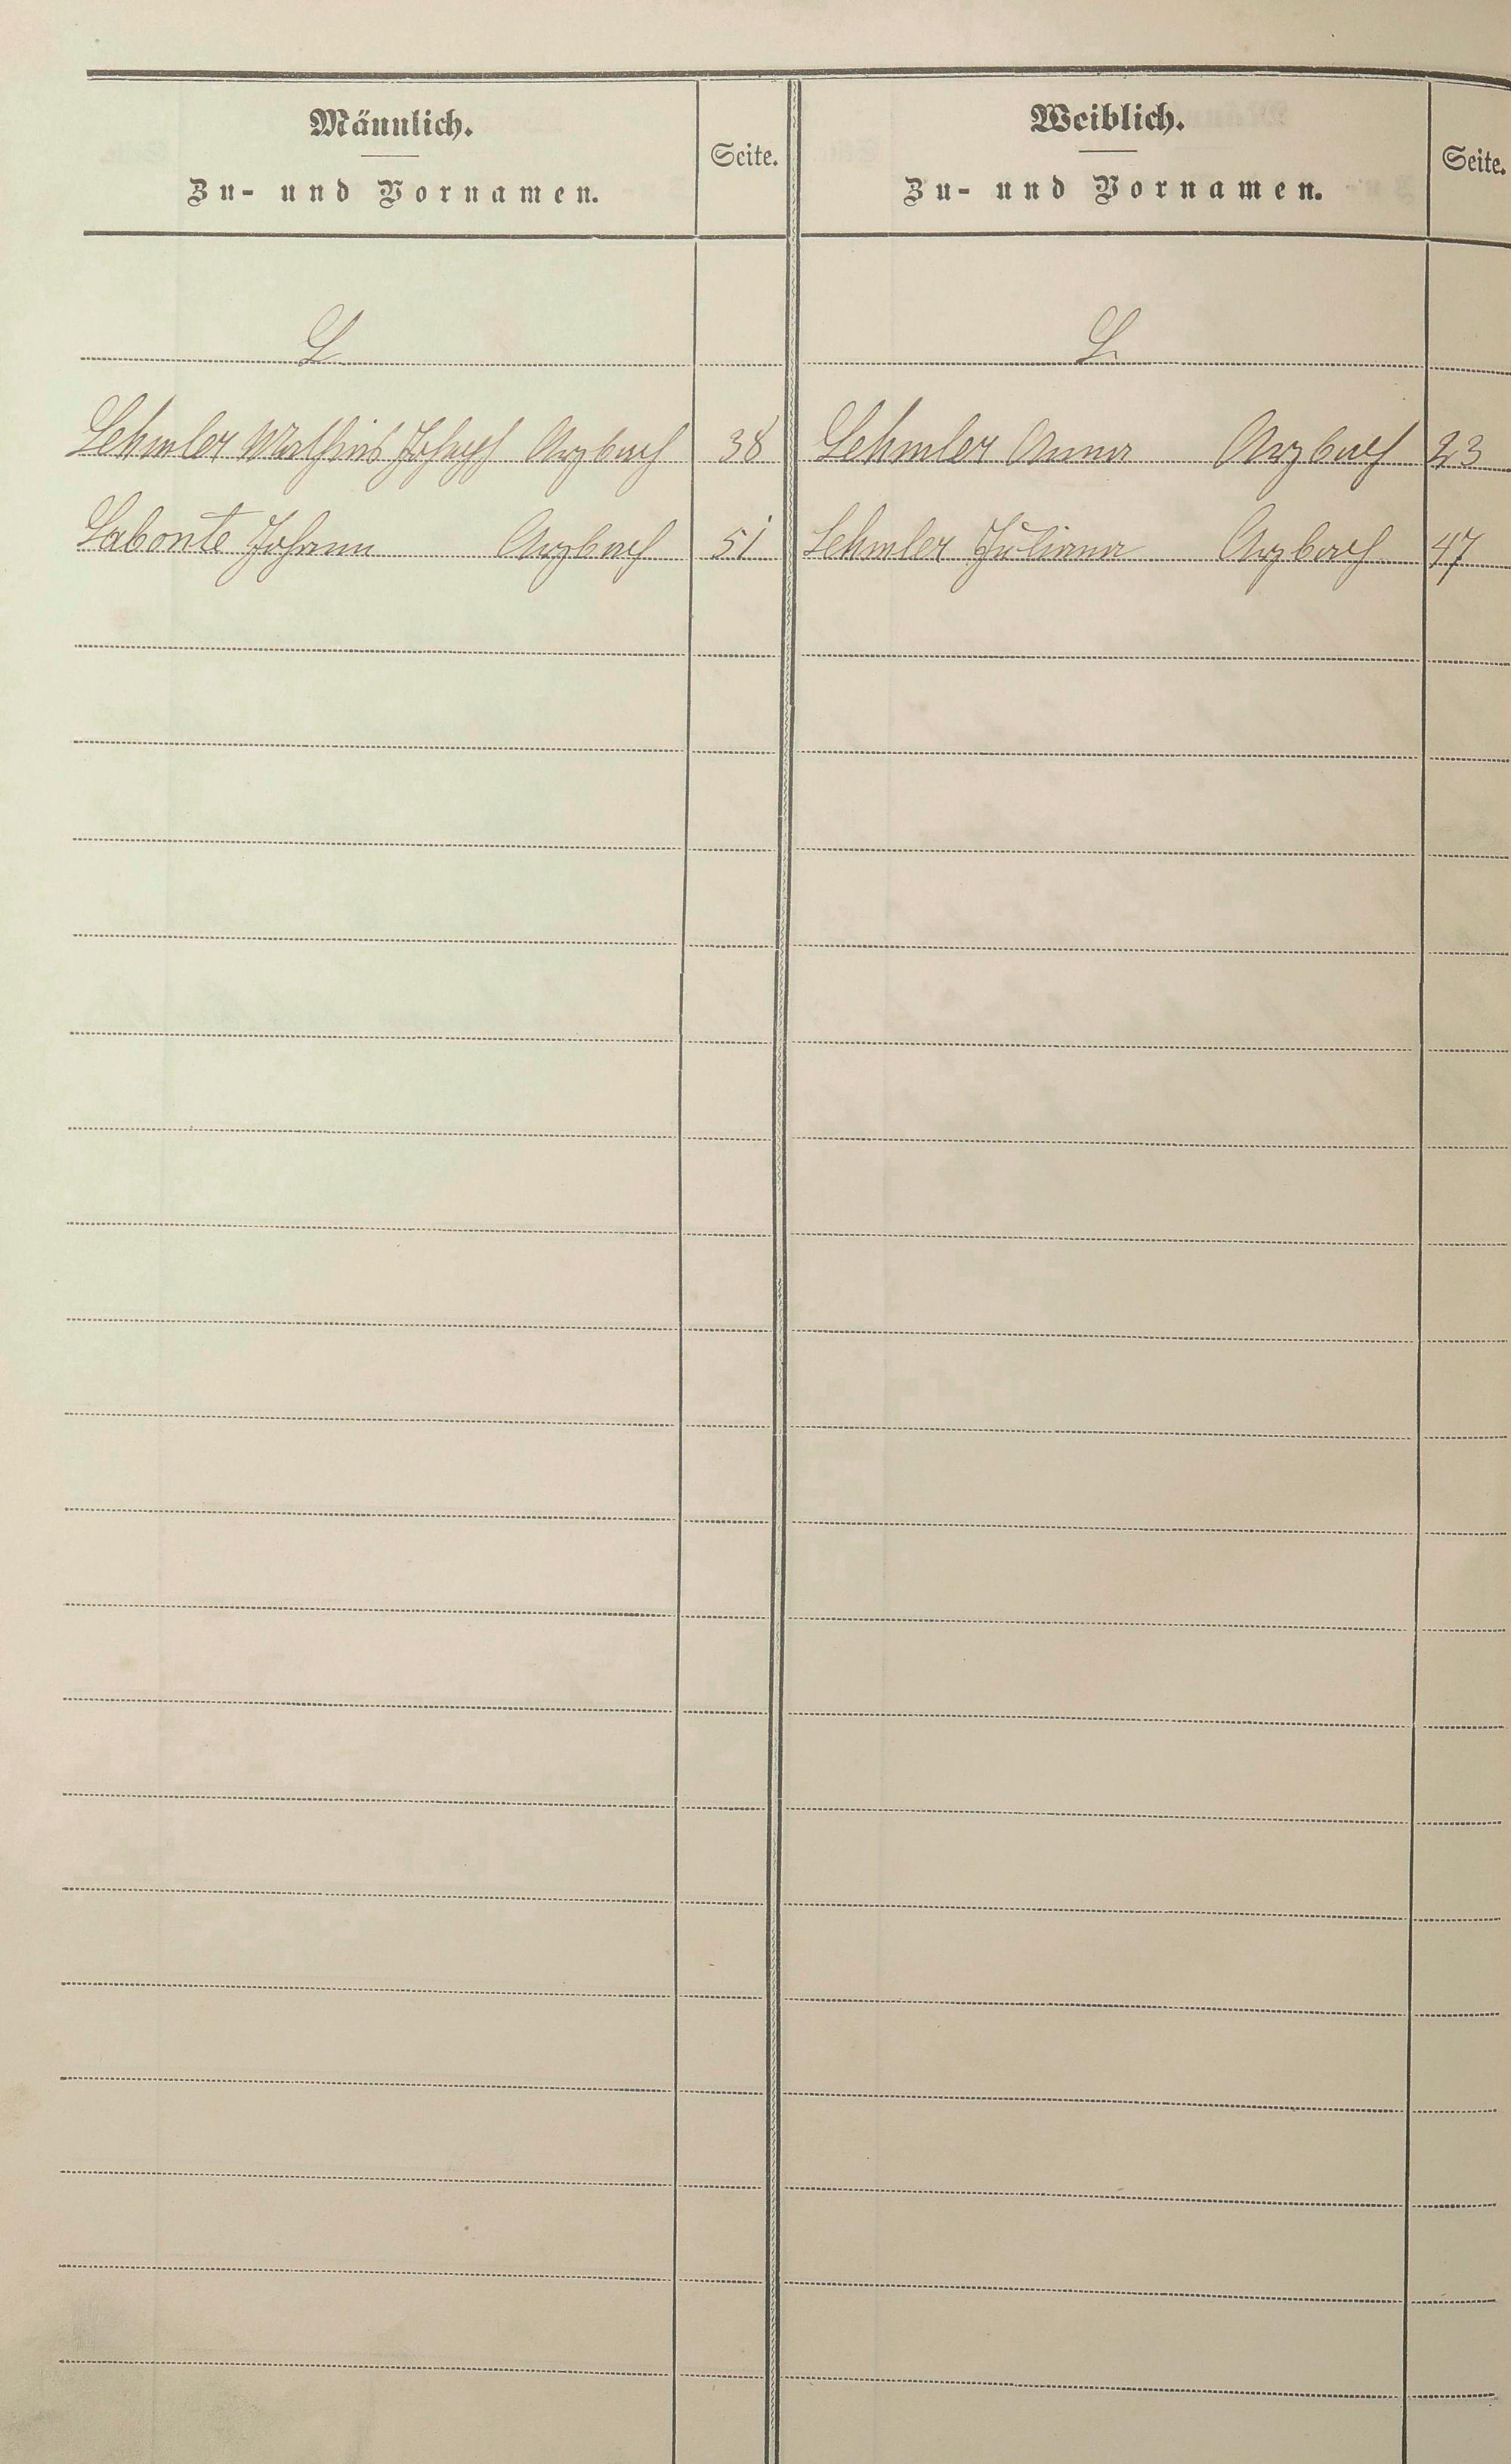 Männlich.
Zu- und Vornamen.
Seite.
Weiblich.
Zu- und Vornamen.
Seite.
L
L.
Lehmler Mathias Joseph Arzbach 38
Lehmler Anna Arzbach 23
Labonte Johann Arzbach 51
Lehmler Juliana Arzbach 47